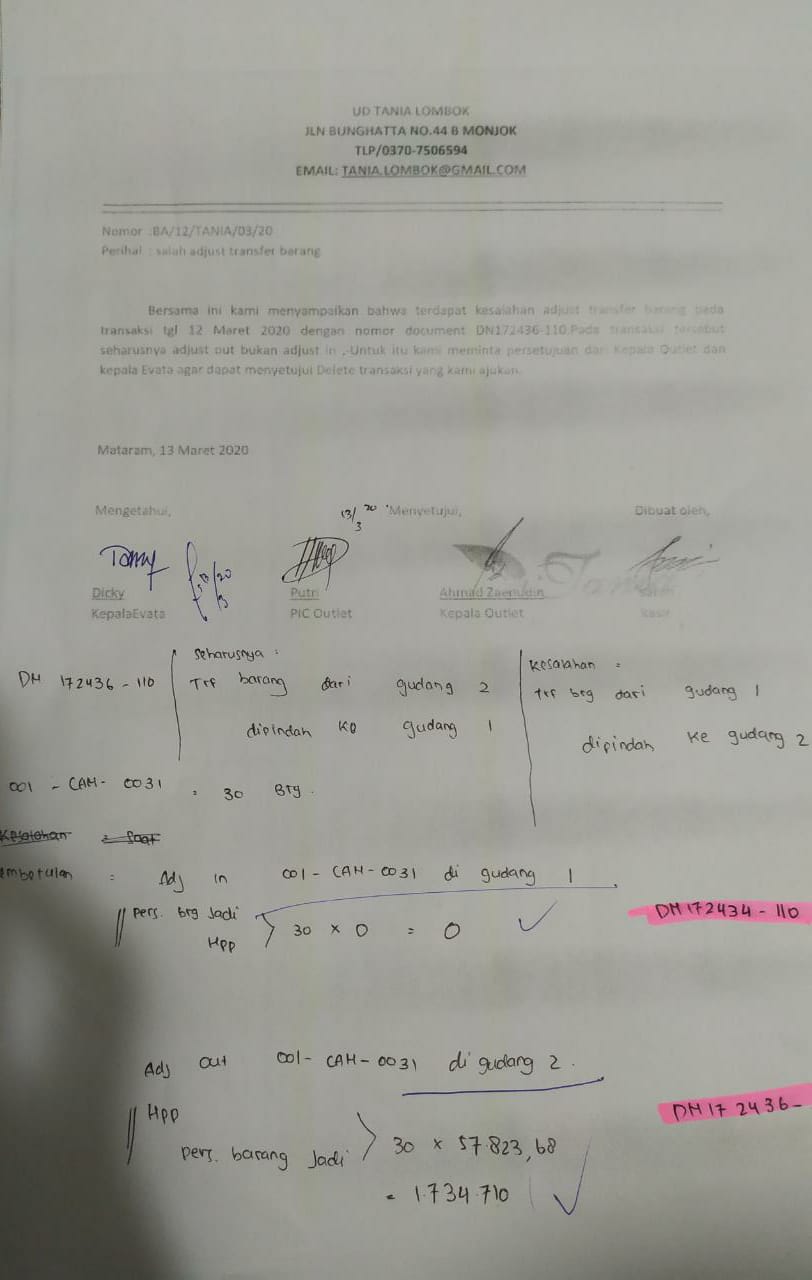 UD TANIA LOMBOK
JLN BUNGHATTA NO.44 B MONJOK
TLP/0370-7506594
EMAIL: TANIA.LOMBOK@GMAIL.COM
Nomor :BA/12/TANIA/03/20
Perihal : salah adjust transfer barang
Bersama ini kami menyampaikan bahwa terdapat kesalahan adjust transfer barang pada
transaksi tgl 12 Maret 2020 dengan nomor document DN172436-110.Pada transaksi tersebut
seharusnya adjust out bukan adjust in ,-Untuk itu kami meminta persetujuan dari Kepala Outlet dan
kepala Evata agar dapat menyetujui Delete transaksi yang kami ajukan.
Mataram, 13 Maret 2020
Mengetahui, 13/3 20 Menyetujui, Dibuat oleh,
Dicky Putri Ahmad Zaenudin
KepalaEvata PIC Outlet Kepala Outlet Kasir
Seharusnya : Kesalahan :
DM 172436 - 110 Trf barang dari gudang 2 trf brg dari gudang 1
dipindah ke gudang 1 dipindah ke gudang 2
001 - CAM - 0031 : 30 Btg.
Kesalahan : Saat
embetulan : Adj in 001 - CAM - 0031 di gudang 1.
Pers. brg Jadi DM 172434 - 110
Hpp 30 x 0 = 0
Adj out 001 - CAM - 0031 di gudang 2.
Hpp DM 172436 -
Pers. barang Jadi 30 x 57.823,68
= 1.734.710